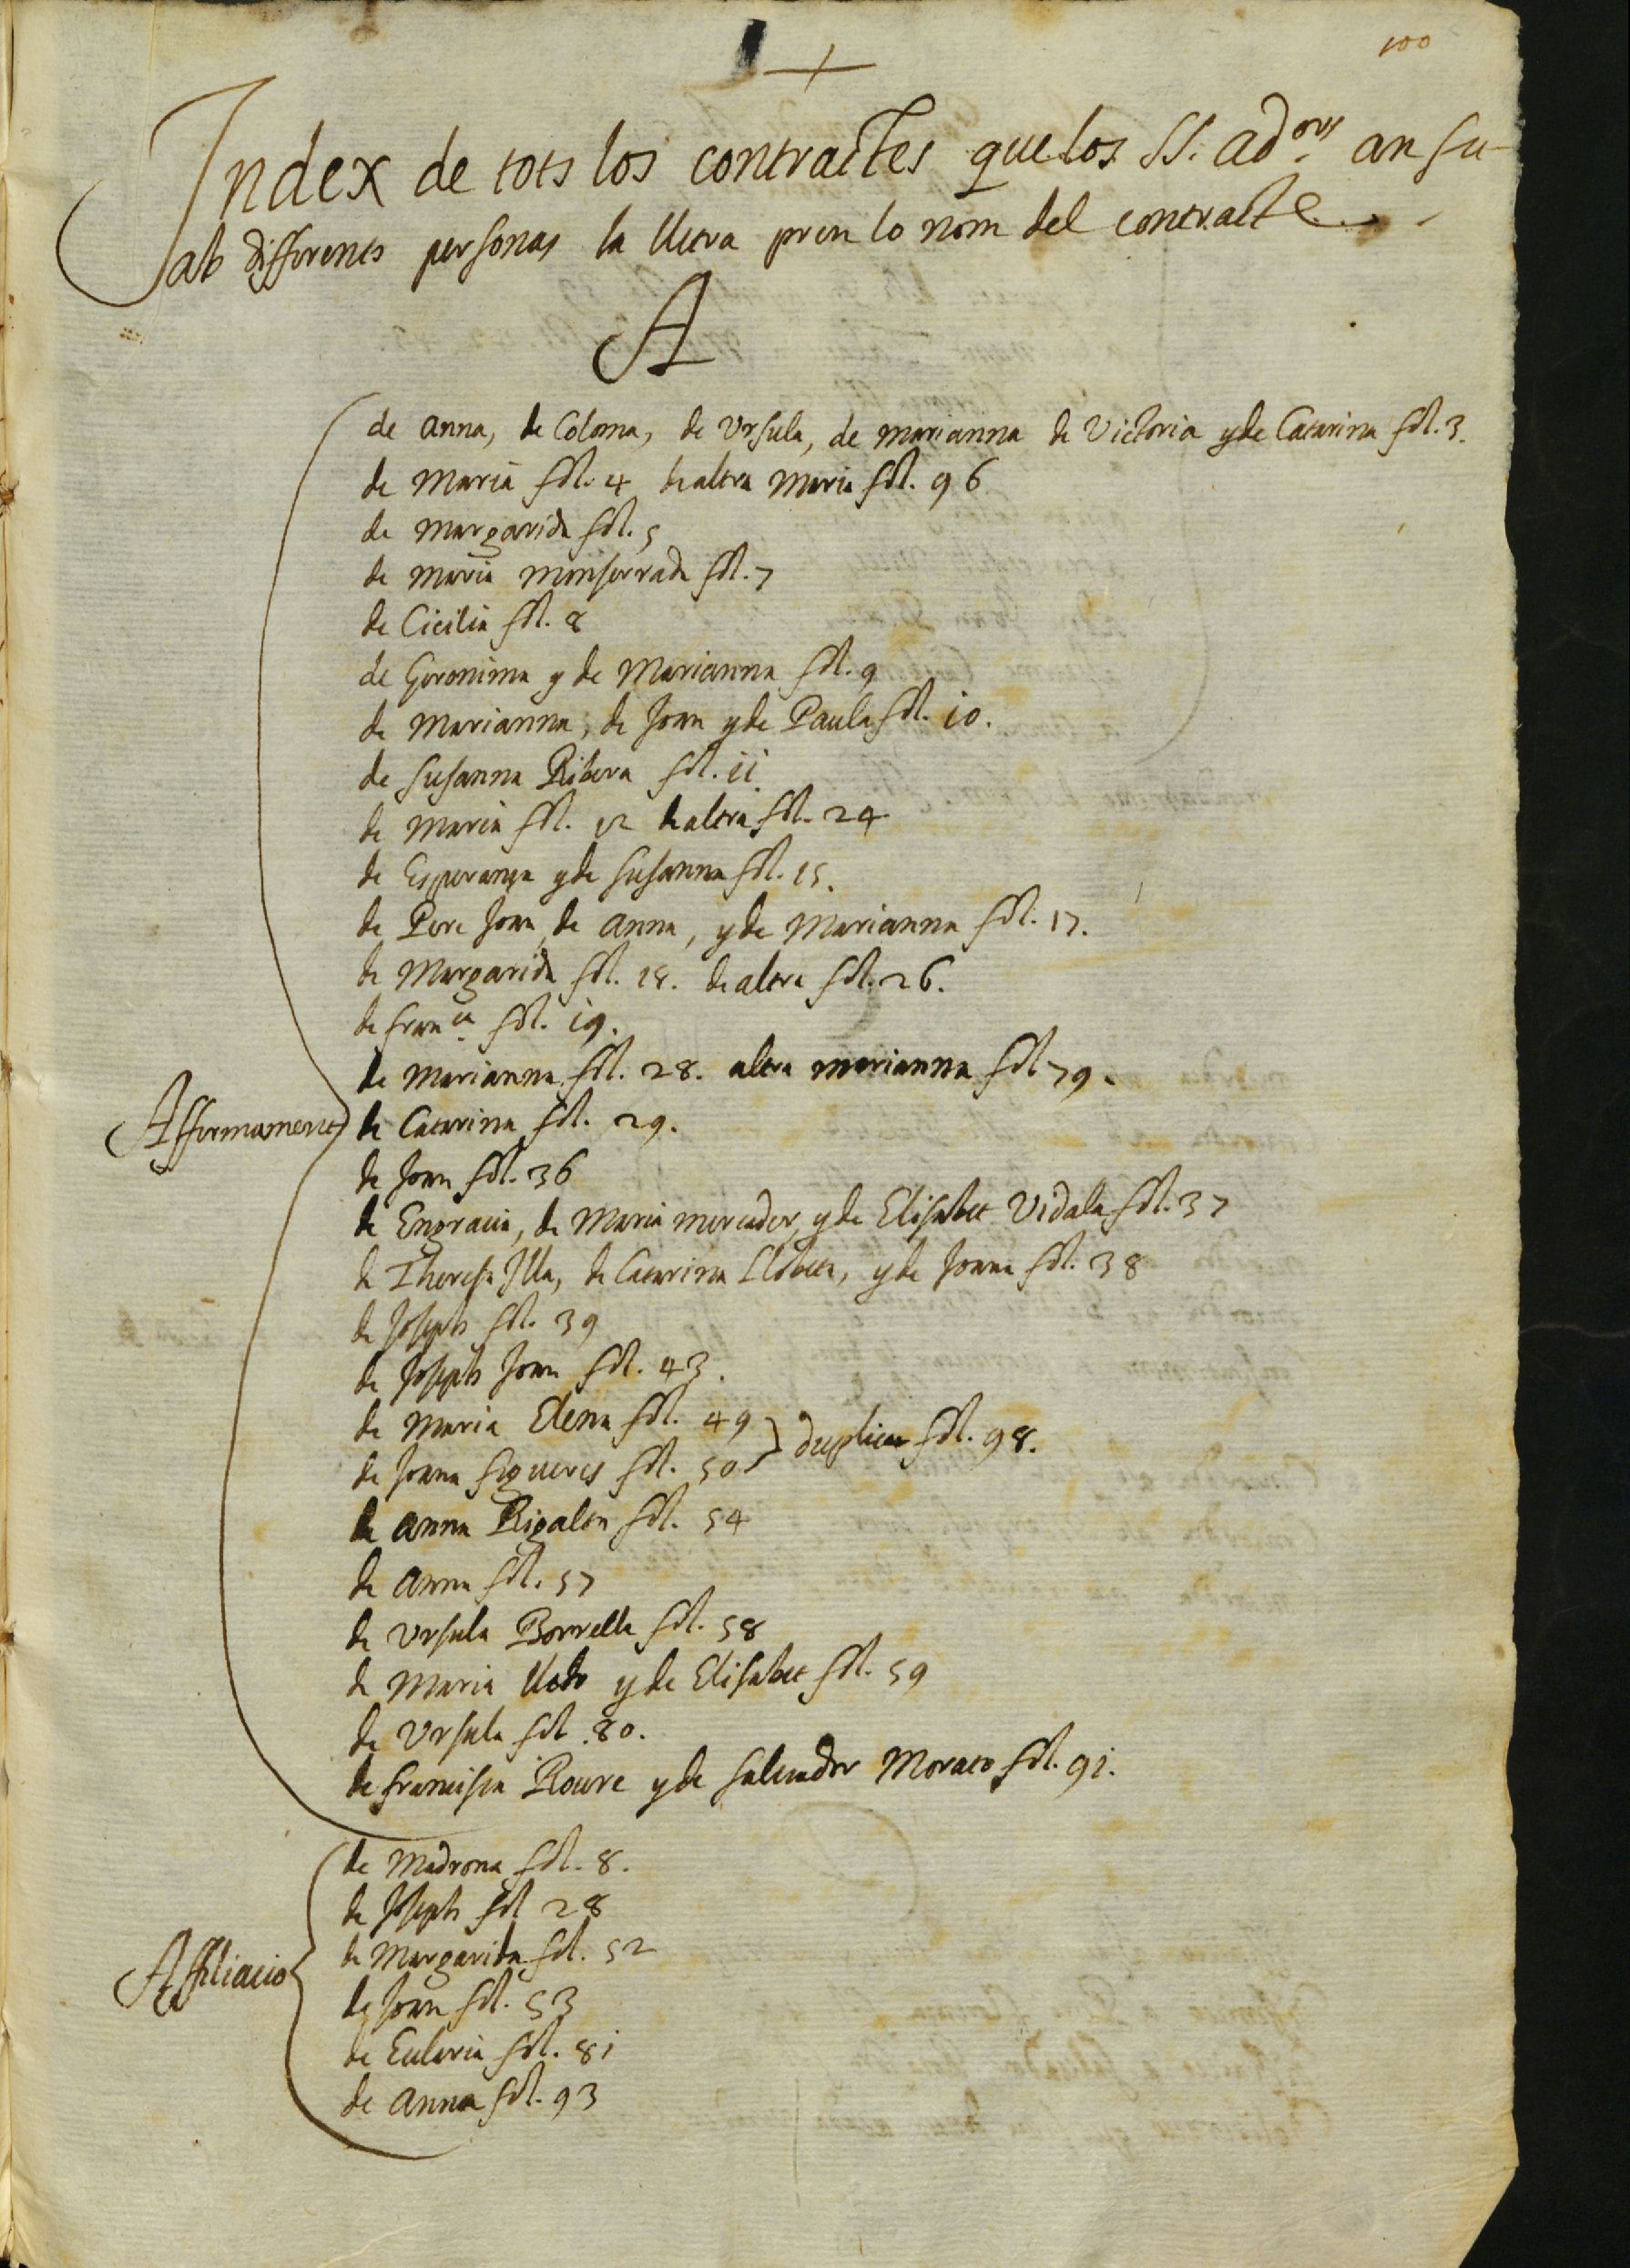 100
+
Index de tots los contractes que los SS. ad.ors an fu-
ab differents personas la lletra pren lo nom del contracte
A
de Anna, de Coloma, de Ursula, de Marianna de Victoria y de Catarina fol. 3.
de Maria fol. 4 de altra Maria fol. 96
de Margarida fol. 5
de Maria Monserrada fol. 7
de Cicilia fol. 8
de Geronima y de Marianna fol. 9
de Marianna, de Joan y de Paula fol. 10.
de Susanna Ribera fol. 11
de Maria fol. 12 de altra fol. 24
de Esperança y de Susanna fol. 15.
de Pere Joan, de Anna, y de Marianna fol. 17.
de Margarida fol. 18. de altra fol. 26.
de Fran.ca fol. 19.
de Marianna fol. 28. altra Marianna fol 79.
Affermament
de Catarina fol. 29.
de Joan fol. 36
de Engracia, de Maria Mercader, y de Elisabet Vidala fol. 37
de Theresa Illa, de Catarina Llobeta, y de Joana fol. 38
de Joseph fol. 39
de Joseph Joan fol. 43.
de Maria Elena fol. 49
de Joana Figueres fol. 50 } duplicat fol. 98.
de Anna Rigalta fol. 54
de Anna fol. 57
de Ursula Borrella fol. 58
de Maria y de Elisabet fol. 59
de Ursula fol. 80.
de Francisca Roure y de Salvador Morato fol. 91.
de Madrona fol. 8.
de Joseph fol 28
de Margarida fol. 52
Affiliacio
de Joan fol. 53
de Eularia fol. 81
de Anna fol. 93